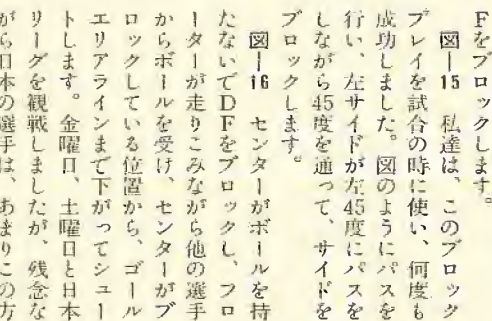 Fをブロックします。
図―15　私達は、このブロック
プレイを試合の時に使い、何度も
成功しました。図のようにパスを
行い、左サイドが左45度にパスを
しながら45度を通って、サイドを
ブロックします。
図―16　センターがボールを持
たないでDFをブロックし、フロ
ーターが走りこみながら他の選手
からボールを受け、センターがブ
ロックしている位置から、ゴール
エリアラインまで下がってシュー
トします。金曜日、土曜日と日本
リーグを観戦しましたが、残念な
がら日本の選手は、あまりこの方